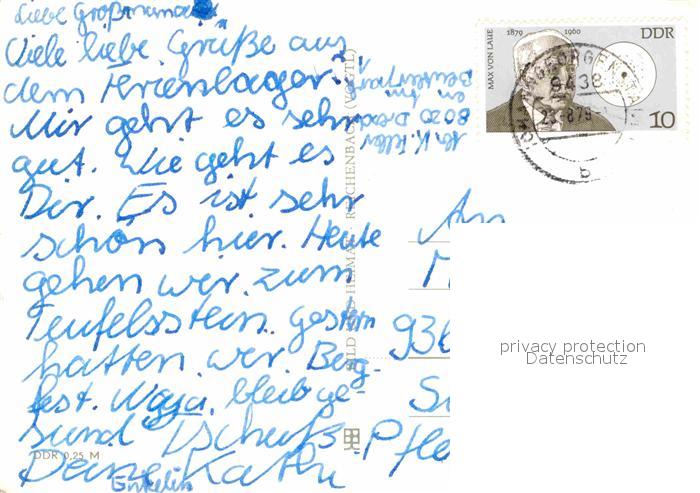 Liebe Großmama
Viele liebe Grüße aus
dem Ferienlager.
Mir geht es sehr
gut. Wie geht es
Dir. Es ist sehr
schön hier. Heute
gehen wir zum
Teufelsstein. gestern
hatten wir Berg-
fest. Naja, bleib ge-
sund Tschüß
Deine Kathi
Enkelin
8020
BILD UND HEIMAT REICHENBACH (VOGTL)
DDR 0,25 M
MAX VON LAUE
1879 1960
DDR
10
GEORGEN
9438
b
An
936
Pfle
privacy protection
Datenschutz